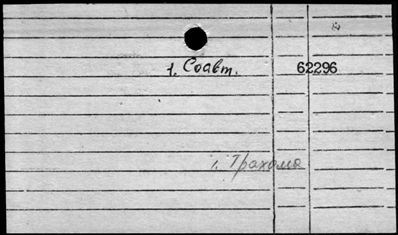 1. Соавт. 62296
1. Трахома